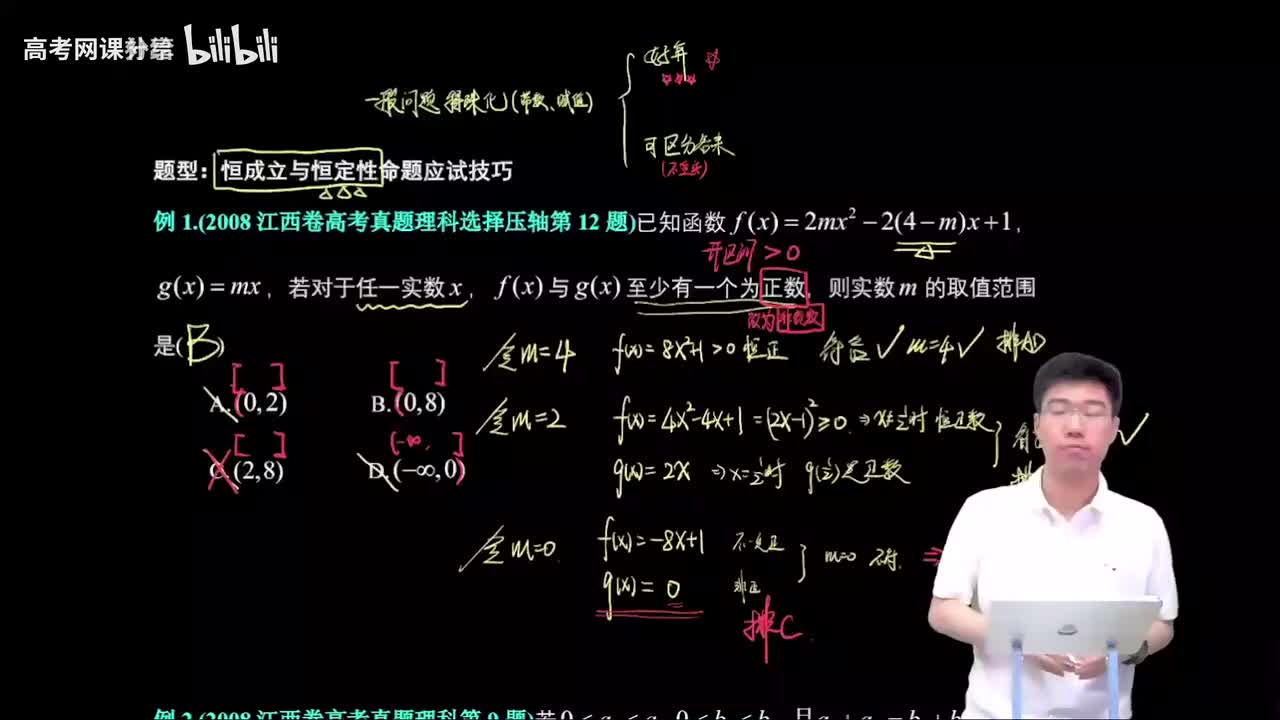 高考网课补给 bilibili
好算
一般问题 特殊化(带数、赋值)
可区分答案
题型：恒成立与恒定性命题应试技巧
例 1.(2008 江西卷高考真题理科选择压轴第 12 题)已知函数 f(x)=2mx²−2(4−m)x+1，
开区间>0
g(x)=mx，若对于任一实数 x， f(x) 与 g(x) 至少有一个为正数，则实数 m 的取值范围
改为非负数
是( B )
令m=4 f(x)=8x²+1>0 恒正 符合✓ m=4✓ 排AD
[ ] [ ]
A.(0,2) B.(0,8)
令m=2 f(x)=4x²-4x+1=(2x-1)²≥0
g(x)=2x ⇒x=½时 g(½)是正数
[ ] (-∞, ]
C.(2,8) D.(−∞,0)
令m=0 f(x)=-8x+1 不一定正
g(x)=0 非正
m=0 不符. ⇒
排C.
例 2.(2008 江西卷高考真题理科第 9 题)若